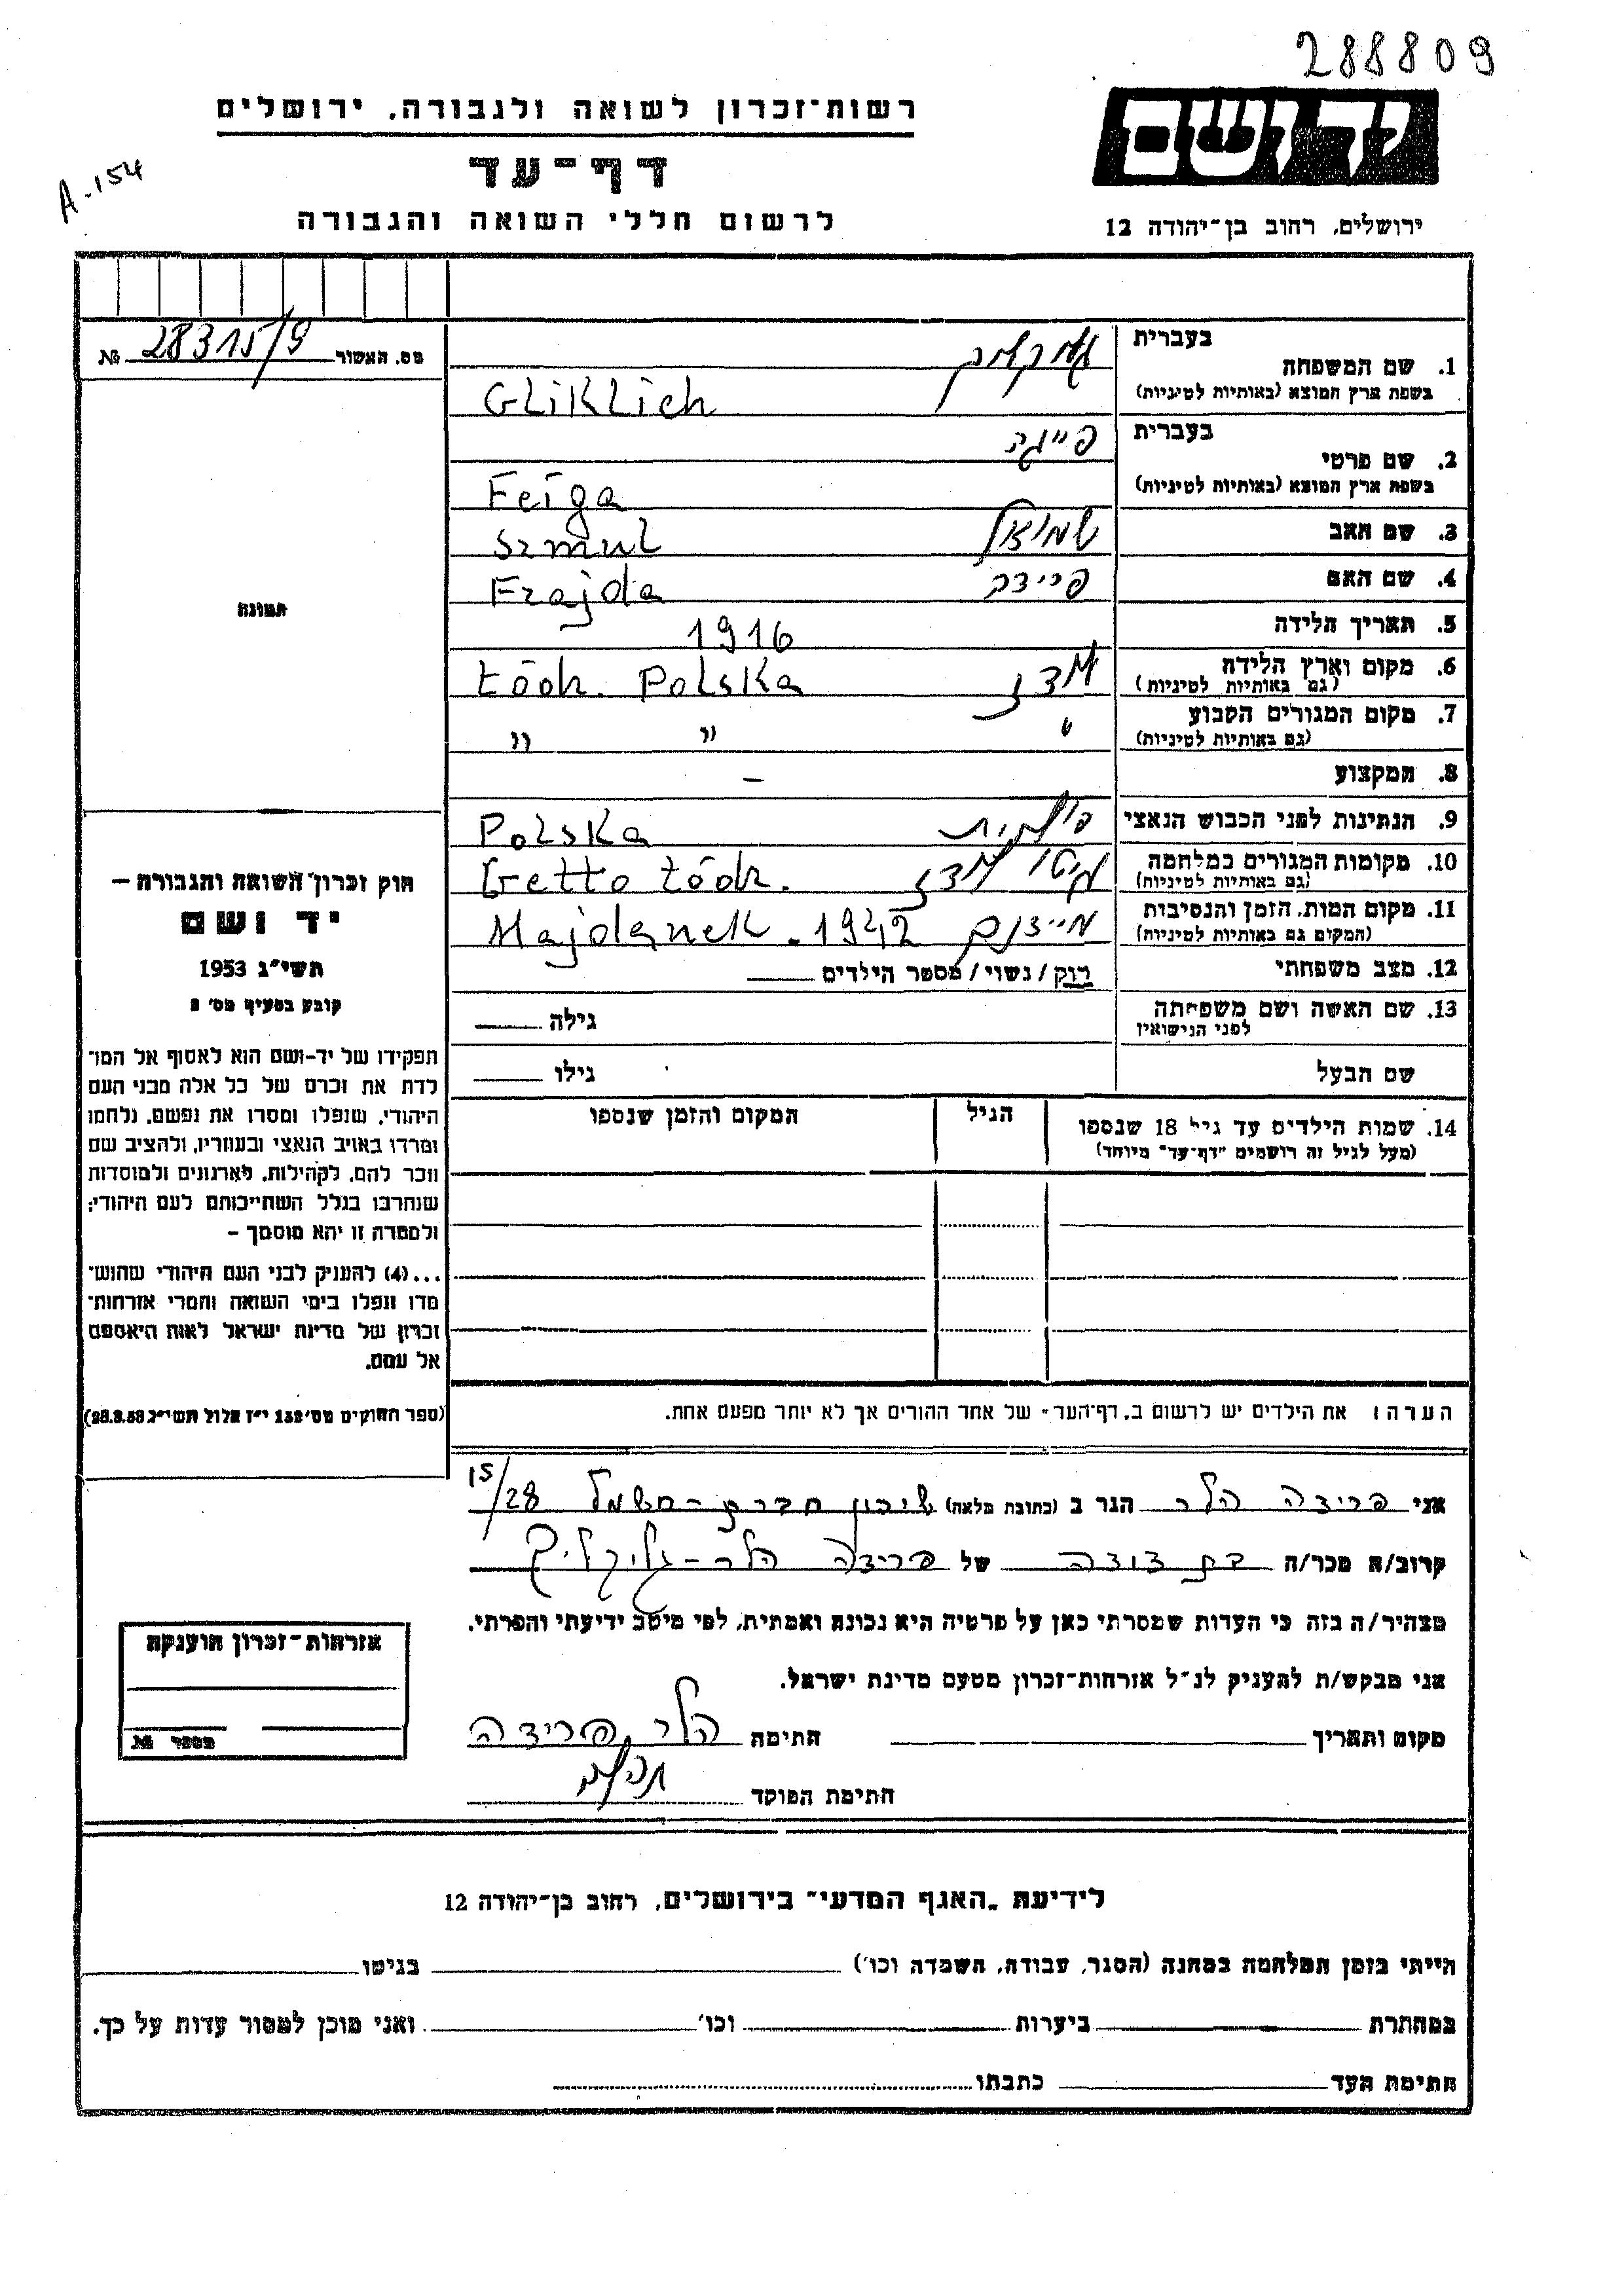 288809
יד ושם
רשות־זכרון לשואה ולגבורה, ירושלים
A-154
דף־עד
לרשום חללי השואה והגבורה
ירושלים, רחוב בן־יהודה 12
מס. האשור 28315/9 №
בעברית
1. שם המשפחה גליקליך
בשפת ארץ המוצא (באותיות לטיניות) GLiKLich
בעברית פייגה
2. שם פרטי
בשפת ארץ המוצא (באותיות לטיניות) Feiga
3. שם האב שמואל Szmul
4. שם האם פריידה Frajda
5. תאריך הלידה 1916
6. מקום וארץ הלידה לודז Łódz. Polska
(גם באותיות לטיניות)
7. מקום המגורים הקבוע " " "
(גם באותיות לטיניות)
8. המקצוע —
9. הנתינות לפני הכבוש הנאצי פולנית Polska
10. מקומות המגורים במלחמה גיטו לודז Getto Łódz.
(גם באותיות לטיניות)
11. מקום המות, הזמן והנסיבות מיידנק Majdanek - 1942
(המקום גם באותיות לטיניות)
12. מצב משפחתי רוק / נשוי / מספר הילדים
13. שם האשה ושם משפחתה גילה
לפני הנישואין
שם הבעל גילו
14. שמות הילדים עד גיל 18 שנספו הגיל המקום והזמן שנספו
(מעל לגיל זה רושמים "דף־עד" מיוחד)
תמונה
חוק זכרון השואה והגבורה —
יד ושם
תשי"ג 1953
קובע בסעיף מס' 2
תפקידו של יד-ושם הוא לאסוף אל המו־
לדת את זכרם של כל אלה מבני העם
היהודי, שנפלו ומסרו את נפשם, נלחמו
ומרדו באויב הנאצי ובעוזריו, ולהציב שם
וזכר להם, לקהילות, לארגונים ולמוסדות
שנחרבו בגלל השתייכותם לעם היהודי;
ולמטרה זו יהא מוסמך —
...(4) להעניק לבני העם היהודי שהוש־
מדו ונפלו בימי השואה והמרי אזרחות־
זכרון של מדינת ישראל לאות היאספם
אל עמם.
(ספר החוקים מס' 132 י"ז אלול תשי"ג 28.8.53)
הערה: את הילדים יש לרשום ב„דף־העד" של אחד ההורים אך לא יותר מפעם אחת.
אני פרידה הלר הגר ב (כתובת מלאה) שיכון חברת-חשמל 28/15
קרוב/ה מכר/ה בת דודה של פרידה הלר-גליקליך
מצהיר/ה בזה כי העדות שמסרתי כאן על פרטיה היא נכונה ואמתית, לפי מיטב ידיעתי והכרתי.
אני מבקש/ת להעניק לנ"ל אזרחות־זכרון מטעם מדינת ישראל.
מקום ותאריך חתימה הלר פרידה
חתימת הפוקד
אזרחות־זכרון הוענקה
מספר №
לידיעת „האגף המדעי" בירושלים, רחוב בן־יהודה 12
הייתי בזמן המלחמה במחנה (הסגר, עבודה, השמדה וכו') בגיטו
במחתרת ביערות וכו' ואני מוכן למסור עדות על כך.
חתימת העד כתבתו